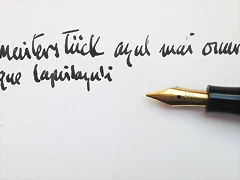 Meisterstück azul más oscur
que lapislazuli